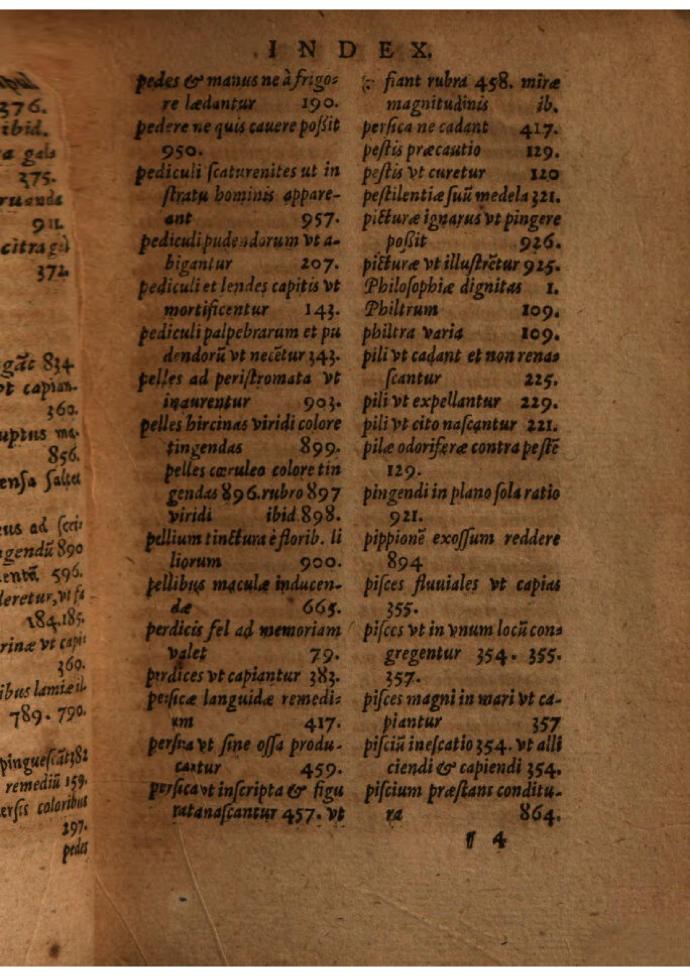 376.
ibid.
375.
911.
372.
834
360.
856.
ensa
us ad
890
596.
184.185.
rinæ vt
369.
ibus lamiæ
789. 790.
remediū 159.
ersis coloribus
297.
pedes
INDEX.
pedes & manus ne à frigo=
re lædantur 190.
pedere ne quis cauere poßit
950.
pediculi scaturenites ut in
stratu hominis appare-
ant 957.
pediculi pudendorum vt a-
bigantur 207.
pediculi et lendes capitis vt
mortificentur 143.
pediculi palpebrarum et pu
dendorū vt necẽtur 343.
pelles ad peristromata vt
inaurentur 903.
pelles hircinas viridi colore
tingendas 899.
pelles cœruleo colore tin
gendas 896. rubro 897
viridi ibid. 898.
pellium tinctura è florib. li
liorum 900.
pellibus maculæ inducen-
dæ 665.
perdicis fel ad memoriam
valet 79.
perdices vt capiantur 383.
persicæ languidæ remedi=
um 417.
persica vt sine ossa produ-
cantur 459.
persica vt inscripta & figu
rata nascantur 457. vt
fiant rubra 458. miræ
magnitudinis ib.
persica ne cadant 417.
pestis præcautio 129.
pestis vt curetur 120
pestilentiæ suū medela 321.
picturæ ignarus vt pingere
poßit 926.
picturæ vt illustrẽtur 925.
Philosophiæ dignitas 1.
Philtrum 109.
philtra varia 109.
pili vt cadant et non renas
scantur 225.
pili vt expellantur 229.
pili vt cito nascantur 221.
pilæ odoriferæ contra pestẽ
129.
pingendi in plano sola ratio
921.
pippionẽ exossum reddere
894
pisces fluuiales vt capias
355.
pisces vt in vnum locū con=
gregentur 354. 355.
357.
pisces magni in mari vt ca-
piantur 357
pisciū inescatio 354. vt alli
ciendi & capiendi 354.
piscium præstans conditu-
ra 864.
¶ 4